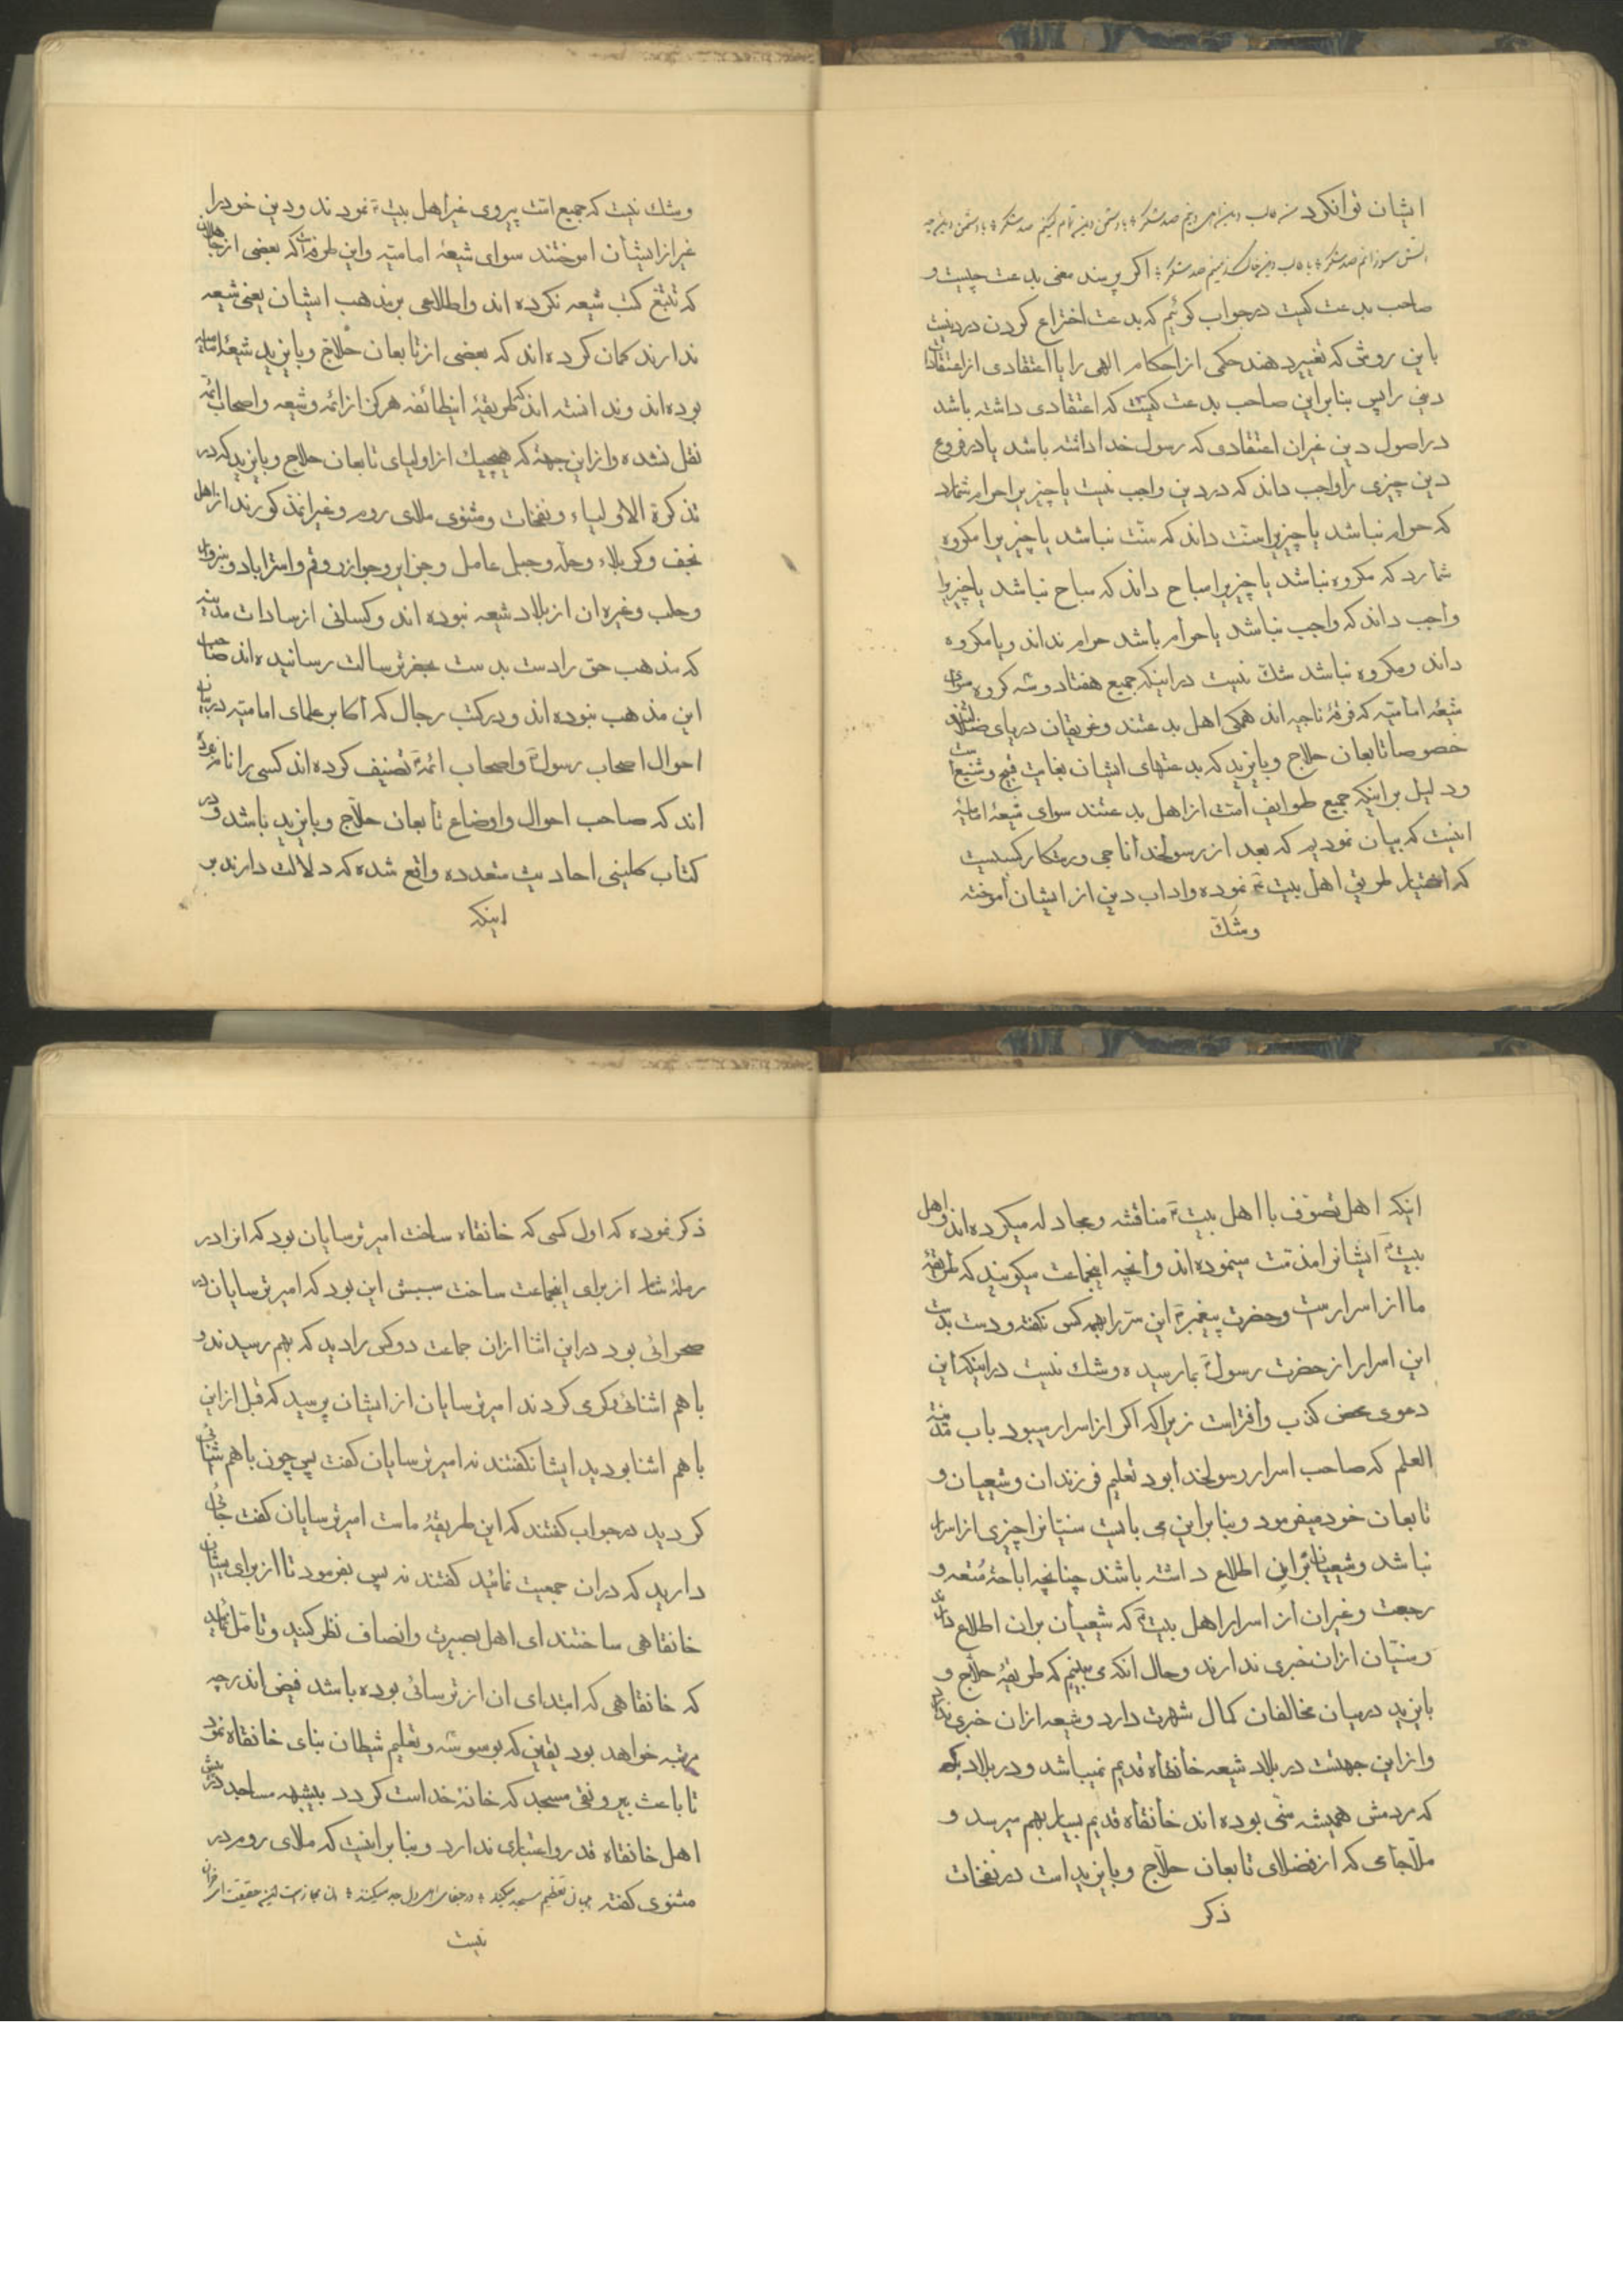 ایشان توانکرد
صد شکر اکر پرسند معنی بدعت چیست و
صاحب بدعت کیست درجواب کوئیم که بدعت اختراع کردن در دینست
باین روش که تغییر دهند حکمی از احکام الهی را یا اعتقادی از اعتقادات
دین را پس بنابراین صاحب بدعت کیست که اعتقادی داشته باشد
در اصول دین غیر ان اعتقادی که رسول خدا داشته باشد یا در فروع
دین چیزی را واجب داند که در دین واجب نیست یا چیزیرا حرام شمارد
که حرام نباشد یا چیزیرا سنت داند که سنت نباشد یا چیزیرا مکروه
شمارد که مکروه نباشد یا چیزیرا مباح داند که مباح نباشد یا چیزیرا
واجب داند که واجب نباشد یا حرام باشد حرام نداند و یا مکروه
داند و مکروه نباشد شک نیست در اینکه جمیع هفتاد و سه کروه سوای
شیعهٔ امامیه که فرقهٔ ناجیه اند همکی اهل بدعتند و غریقان دریای ضلالتند
خصوصا تابعان حلاج و بایزید که بدعتهای ایشان بغایت قبیح و شنیع است
و دلیل بر اینکه جمیع طوایف امت از اهل بدعتند سوای شیعهٔ امامیهٔ
اینست که بیان نمودیم که بعد از رسولخدا ناجی و رستکار کسیست
که اختیار طریق اهل بیت نموده و اداب دین از ایشان آموخته
وشک
وشک نیست که جمیع امت پیروی غیر اهل بیت نمودند و دین خود را
غیر از ایشان اموختند سوای شیعهٔ امامیه و این طرفه است که بعضی از جاهلان
که تتبع کتب شیعه نکرده اند و اطلاعی بر مذهب ایشان یعنی شیعه
ندارند کمان کرده اند که بعضی از تابعان حلاج و بایزید شیعهٔ امامیه
بوده اند و ندانسته اند که طریقهٔ اینطائفه هرکز از ائمه و شیعه و اصحاب ائمه
نقل نشده و از این جههٔ که هیچیک از اولیای تابعان حلاج و بایزید که در
تذکرة الاولیاء و نفحات و مثنوی ملای روم و غیر انمذکورند از اهل
نجف و کربلاء و حله و جبل عامل و جزایر و حوازر و قم و استراباد و سبزوار
و حلب و غیره ان از بلاد شیعه نبوده اند و کسانی از سادات مدینه
که مذهب حق را دست بدست بحضرت رسالت رسانیده اند صاحب
این مذهب نبوده اند و در کتب رجال که اکابر علمای امامیه در بیان
احوال اصحاب رسول و اصحاب ائمه تصنیف کرده اند کسی را نام نبرده
اند که صاحب احوال و اوضاع تابعان حلاج و بایزید باشد و در
کتاب کلینی احادیث متعدده واقع شده که دلالت دارند بر
اینکه
اینکه اهل تصوف با اهل بیت مناقشه و مجادله میکرده اند و اهل
بیت ایشانرا مذمت مینموده اند و انچه اینجماعت میکویند که طریقهٔ
ما از اسرارست و حضرت پیغمبر این سر را بهمه کس نکفته و دست بدست
این اسرار از حضرت رسول بما رسیده و شک نیست در اینکه این
دعوی محض کذب و افتراست زیرا که اکر از اسرار میبود باب مدینهٔ
العلم که صاحب اسرار رسولخدا بود تعلیم فرزندان و شیعیان و
تابعان خود میفرمود و بنا براین می بایست سنیانرا چیزی از اسرار
نباشد و شیعیان براین اطلاع داشته باشند چنانچه اباحهٔ متعه و
رجعت و غیر ان از اسرار اهل بیت که شیعیان بران اطلاع دارند
و سنیان ازان خبری ندارند و حال انکه می بینیم که طریقهٔ حلاج و
بایزید در میان مخالفان کمال شهرت دارد و شیعه ازان خبری ندارند
و از این جهتست در بلاد شیعه خانقاه قدیم نمیباشد و در بلادیکه
که مردمش همیشه سنی بوده اند خانقاه قدیم بسیار بهم میرسد و
ملا جامی که از فضلای تابعان حلاج و بایزید است در نفحات
ذکر
ذکر نموده که اول کسی که خانقاه ساخت امیر ترسایان بود که انرا در
رملهٔ شام از برای اینجماعت ساخت سببش این بود که امیر ترسایان در
صحرائی بود در این اثنا ازان جماعت دو کس را دید که بهم رسیدند و
با هم اشنائی و کرمی کردند امیر ترسایان از ایشان پرسید که قبل از این
با هم اشنا بودید ایشان کفتند نه امیر ترسایان کفت پس چون با هم اشنائی
کردید در جواب کفتند که این طریقهٔ ماست امیر ترسایان کفت جائی
دارید که دران جمعیت نمائید کفتند نه پس بفرمود تا از برای ایشان
خانقاهی ساختند ای اهل بصیرت و انصاف نظر کنید و تامل نمائید
که خانقاهی که ابتدای ان از ترسائی بوده باشد فیض اندر چه
مرتبه خواهد بود یقین که بوسوسه و تعلیم شیطان بنای خانقاه نمود
تا باعث بیرونقی مسجد که خانهٔ خداست کردد بیشبهه مساجد در پیش
اهل خانقاه قدر و اعتباری ندارد و بنا براینست که ملای روم در
مثنوی کفته تعظیم مسجد میکنند در جفای اهل دل جد میکنند ان مجازست این حقیقت ای خران
نیست